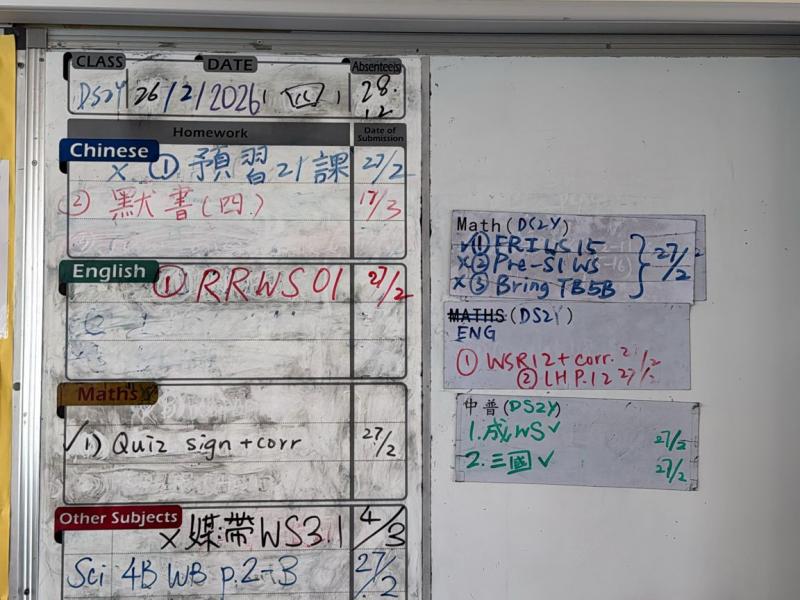 CLASS DATE Absentee(s)
DS2Y 26/2/2026, (四), 28.
12
Homework Date of Submission
Chinese
x ① 預習21課 27/2
② 默書(四) 17/3
English
① RRWS 01 27/2
Maths
✓ 1) Quiz sign + corr 27/2
Other Subjects
x 媒帶WS3.1 4/3
Sci 4B WB p.2-3 27/2
Math (DS2Y)
✓① FRI WS 15
x② Pre-S1 WS
x③ Bring TB5B
27/2
MATHS (DS2Y)
ENG
① WSR12 + corr. 27/2
② LHP.12 27/2
中普(DS2Y)
1. 成WS ✓ 27/2
2. 三國 ✓ 27/2